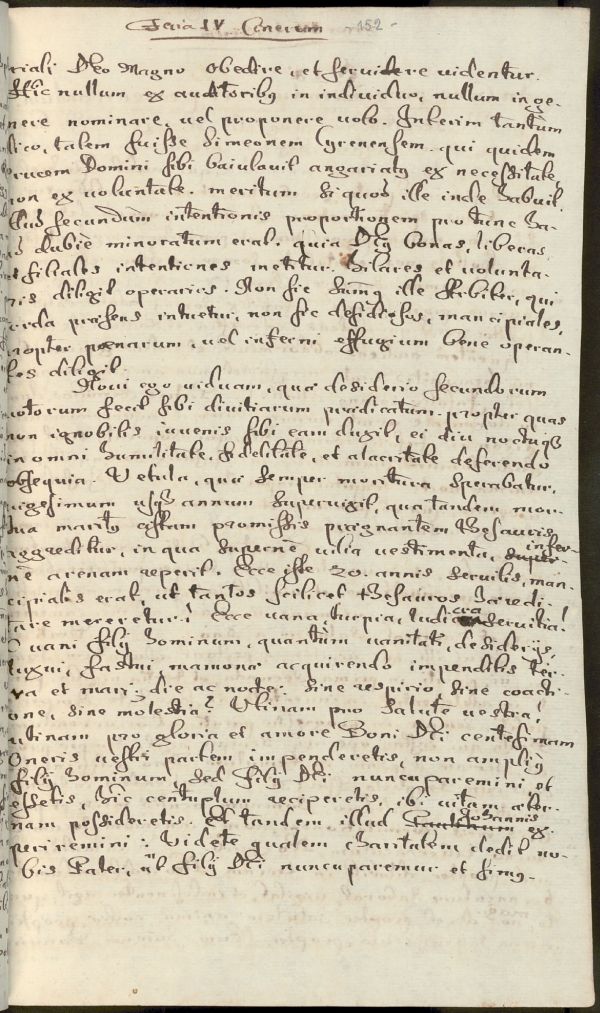 Feria IV Cinerum - 152 -
riali Deo Magno obedire, et servire videntur.
Hic nullum ex auditoribus in individuo, nullum in ge-
nere nominare, vel proponere volo. Interim tantum
dico, talem fuisse Simeonem Cyrenensem. qui quidem
crucem Domini sibi baiulavit angariatus ex necessitate,
non ex voluntate. meritum siquod ille inde habuit
secundum intentionis proportionem pro tunc
dubie minoratum erat. quia Deus bonas, liberas,
et filiales intentiones metitur. hilares et volunta-
rios diligit operarios. Non sic summus ille Arbiter, qui
corda praesens intuetur, non sic desidiosos, mancipiales,
propter poenarum, vel inferni effugium bene operan-
tes diligit.
Novi ego viduam, quae desiderio secundorum
votorum fecit sibi divitiarum praedicatum. propter quas
non ignobilis iuvenis sibi eam duxit, ei diu noctuque
in omni humilitate, fidelitate, et alacritate deferendo
obsequia. Vetula, quae semper moritura sperabatur,
vigesimum usque annum supervixit, qua tandem mor-
tua maritus cistam promissis praegnantem thesauris
aggreditur, in qua superne vilia vestimenta, infer-
ne arenam reperit. Ecce iste 20. annis servilis, man-
cipialis erat, ut tantos scilicet thesauros haeredi-
tare mereretur! Ecce vana, turpia, ludicra servitia!
O vani filii hominum, quantum vanitati, desideriis,
luxui, fastui, mamonae acquirendo impenditis ter-
ra et mari; die ac nocte; sine respirio, sine coacti-
one, sine molestia? Utinam pro salute vestra!
utinam pro gloria et amore Boni Dei centesimam
Oneris vestri partem impenderetis, non amplius
filii hominum, sed filii Dei nuncuparemini, et
essetis, hic centuplum reciperetis, ibi vitam aeter-
nam possideretis. Et tandem illud Johannis ex-
periremini: Videte qualem charitatem dedit no-
bis Pater, ut filii Dei nuncupemur et simus.